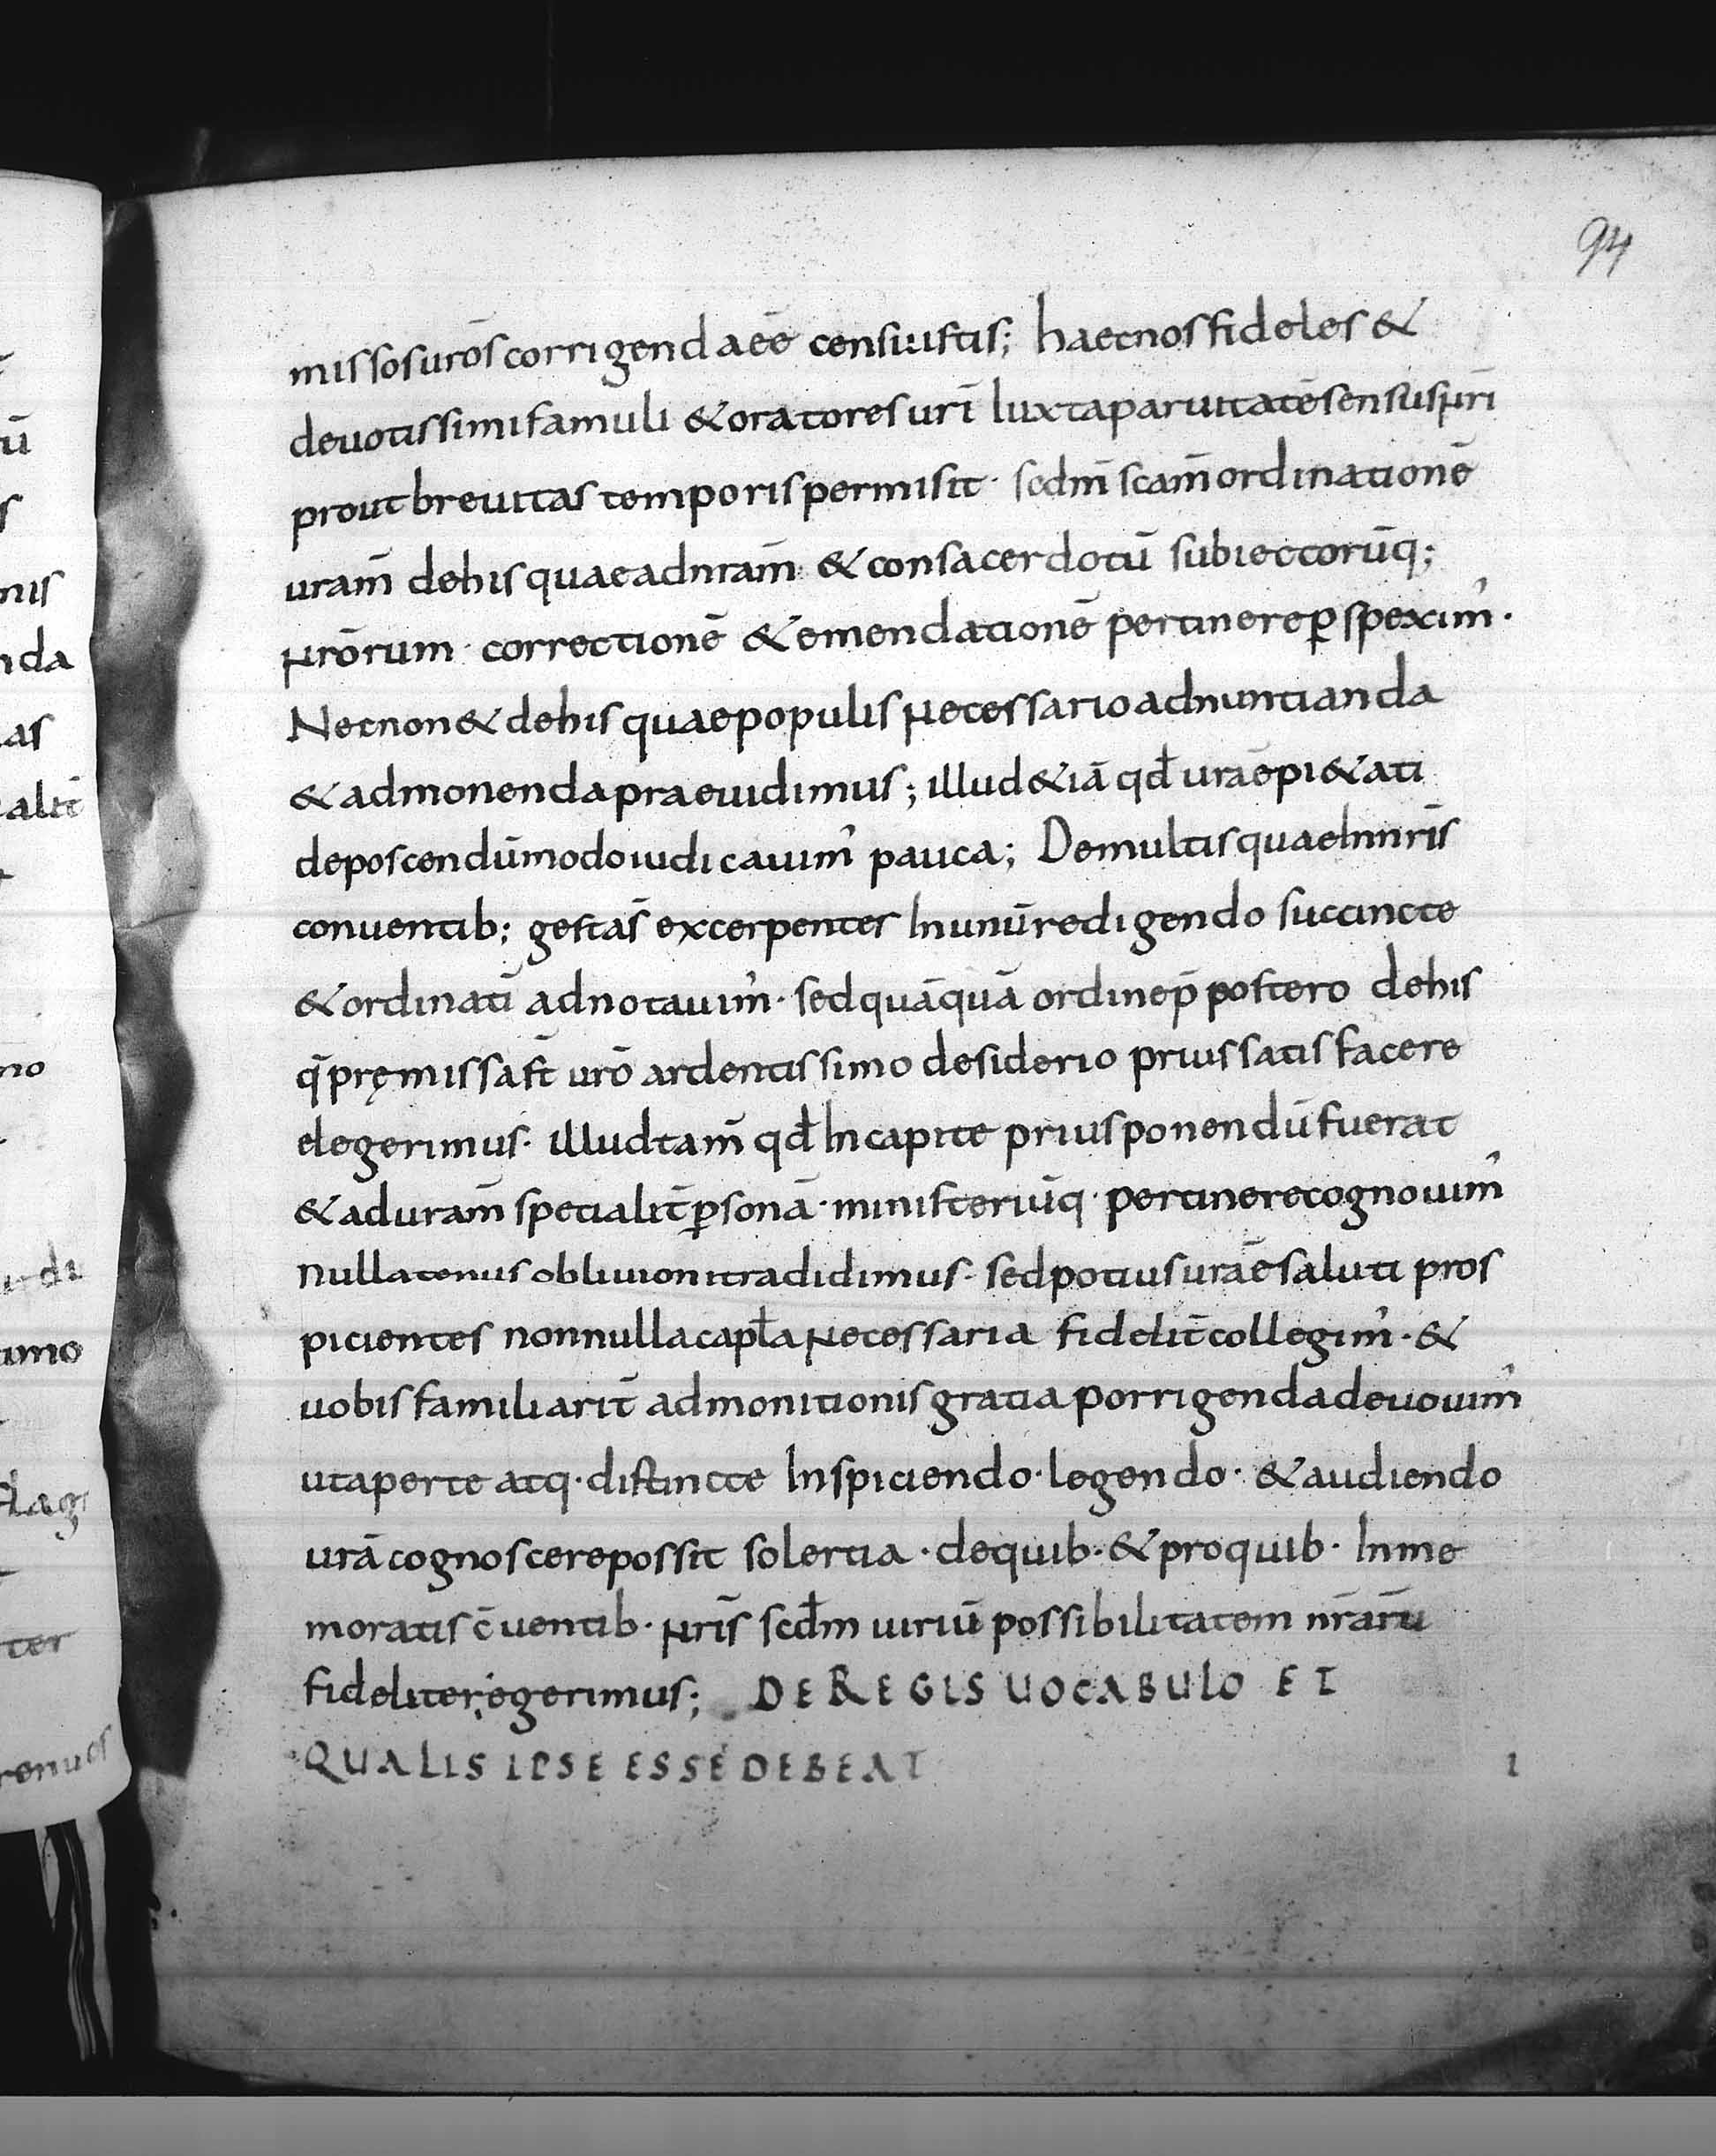 94
missos uros corrigenda eē censuistis; haec nos fideles &
deuotissimi famuli & oratores urī Iuxta paruitatē sensus nrī
prout breuitas temporis permisit· sedm̄ scam̄ ordinationē
uram̄ de his quae ad nram̄ & consacerdotū subiectorūq;
nrōrum· correctionē & emendationē pertinere ꝑspexim᾽·
Necnon & de his quae populis necessario adnuntianda
& admonenda praeuidimus; illud &iā qđ urāe pi&ati
deposcendū modo iudicauim᾽ pauca; De multis quae In nrīs
conuentib; gesta s̄ excerpentes In unū redigendo succincte
& ordinatī adnotauim᾽· sed quāquā ordine p̄postero de his
q̄ pręmissa st̄ urō ardentissimo desiderio prius satisfacere
elegerimus· illud tam̄ qđ In capite prius ponendū fuerat
& ad uram̄ specialit̄ ꝑsonā· ministeriūq· pertinere cognouim᾽
nullatenus obliuioni tradidimus· sed potius urāe saluti pros
picientes nonnulla capła necessaria fidelit̄ collegim᾽· &
uobis familiarit̄ admonitionis gratia porrigenda deuouim᾽
ut aperte atq· distincte Inspiciendo· legendo· & audiendo
urā cognoscere possit solertia· de quib· & pro quib· In me
moratis c̄uentib· nrīs scđm uiriū possibilitatem nrārū
fideliter egerimus; DE REGIS UOCABULO ET
QUALIS IPSE ESSE DEBEAT I